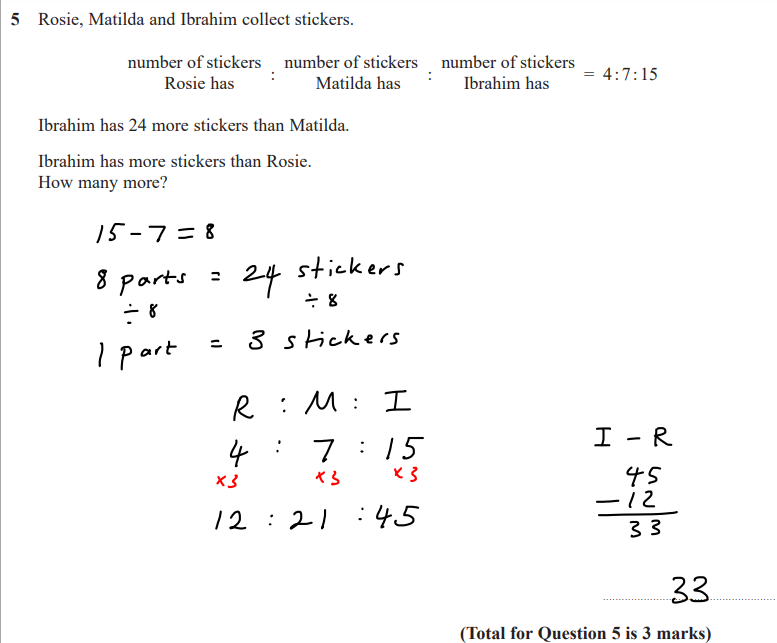 5 Rosie, Matilda and Ibrahim collect stickers.
number of stickers : number of stickers : number of stickers = 4 : 7 : 15
Rosie has Matilda has Ibrahim has
Ibrahim has 24 more stickers than Matilda.
Ibrahim has more stickers than Rosie.
How many more?
15 - 7 = 8
8 parts = 24 stickers
÷ 8 ÷ 8
1 part = 3 stickers
R : M : I
4 : 7 : 15
×3 ×3 ×3
12 : 21 : 45
I - R
45
- 12
33
33
(Total for Question 5 is 3 marks)